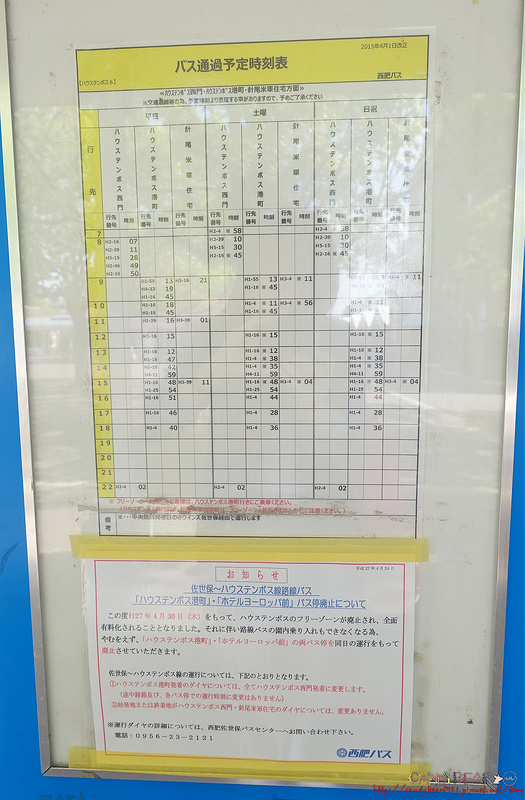 2015年4月1日改正
バス通過予定時刻表
【ハウステンボス6】
西肥バス
≪ハウステンボス西門・ハウステンボス港町・針尾米軍住宅方面≫
平日 土曜 日祝
行先 ハウステンボス西門 ハウステンボス港町 針尾米軍住宅 ハウステンボス西門 ハウステンボス港町 針尾米軍住宅 ハウステンボス西門 ハウステンボス港町 針尾米軍住宅
行先番号 時刻 行先番号 時刻 行先番号 時刻 行先番号 時刻 行先番号 時刻 行先番号 時刻 行先番号 時刻 行先番号 時刻 行先番号 時刻
7 H2-4 ※ 58 H2-4 ※ 58
8 H2-16 07 H2-39 10 H2-39 10
H2-39 11 H5-15 30 H5-15 30
H5-15 28 H2-16 ※ 45 H2-16 ※ 45
H2-46 49
H2-16 50
9 H1-55 13 H3-16 21 H1-55 13 H3-4 ※ 11 13 ※ 11
H4-33 19 H1-16 ※ 45 45
H1-16 45
10 H1-16 18 H1-4 ※ 11 H3-4 ※ 56
H1-16 45 H1-16 ※ 45
11 H1-39 16 H3-39 01
12 H1-16 15 H1-16 ※ 15 H1-16 ※ 15
13 H1-16 12 H1-16 ※ 12 H1-16 ※ 12
H1-16 47 H1-4 ※ 38 H1-4 ※ 38
14 H1-16 42 H1-4 ※ 35 H1-4 ※ 35
H4-11 59 H4-11 59 H4-11 59
15 H1-16 48 H3-39 11 H1-16 ※ 48 H3-4 ※ 04 H1-16 ※ 48 H3-4 ※ 04
H1-25 54 H1-25 54 H1-25 54
16 H1-16 51 H1-4 44 H1-4 44
17 H1-16 46 H1-4 28 H1-4 28
18 H1-4 40 H1-4 36 H1-4 36
19
20
21
22 H2-4 02 H2-4 02 H2-4 02
備考
平成27年4月24日
お知らせ
佐世保～ハウステンボス線路線バス
「ハウステンボス港町」・「ホテルヨーロッパ前」バス停廃止について
この度H27年4月30日（木）をもって、ハウステンボスのフリーゾーンが廃止され、全面
有料化されることとなりました。それに伴い路線バスの園内乗り入れもできなくなる為、
やむをえず、「ハウステンボス港町」・「ホテルヨーロッパ前」の両バス停を同日の運行をもって
廃止させていただきます。
佐世保～ハウステンボス線の運行については、下記のとおりとなります。
①ハウステンボス港町発着のダイヤについては、全てハウステンボス西門発着に変更します。
（途中経路及び、各バス停での運行時刻に変更はありません。）
②始発地または終着地がハウステンボス西門・針尾米軍住宅のダイヤについては、変更ありません。
※運行ダイヤの詳細については、西肥佐世保バスセンターへお問い合わせ下さい。
電話：0956-23-2121
西肥バス